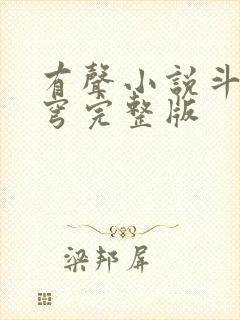 有聲小說斗
穹完整版
梁邦屏